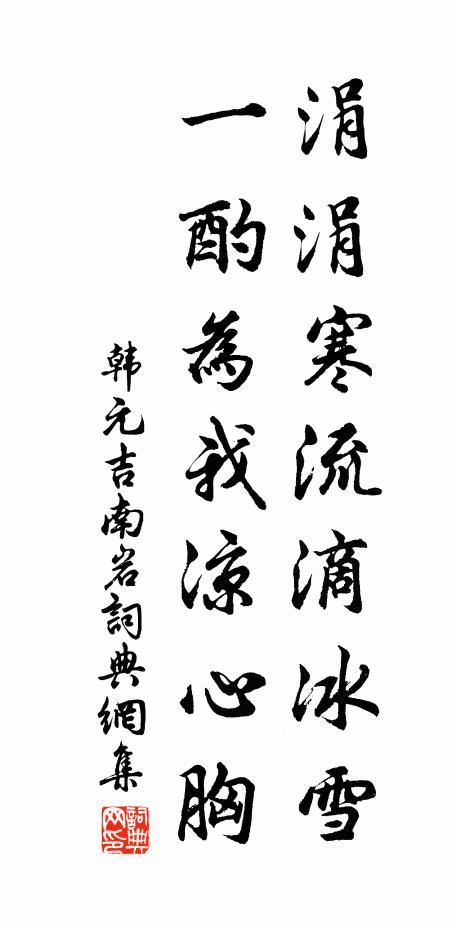 涓涓寒流滴冰雪
一酌為我凉心胸
韩元吉南岩詞典網集
詞典网印